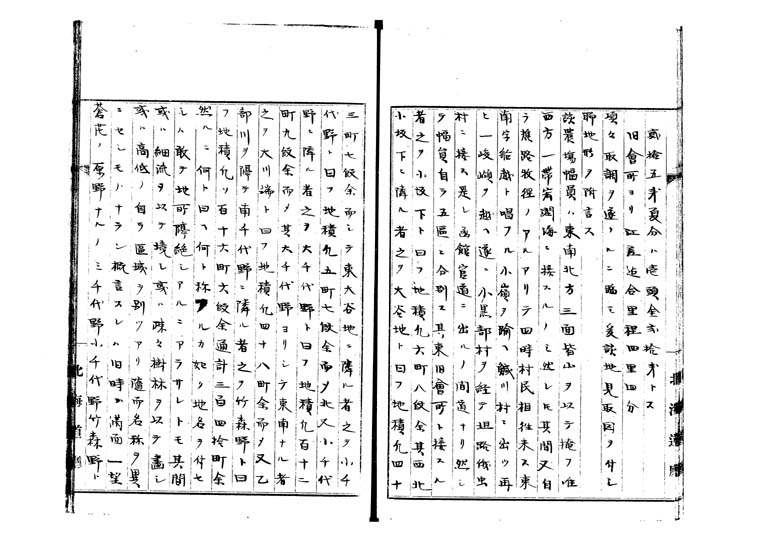 貳拾五米夏合ハ壱頭全弐拾米トス
旧會所ヨリ江差迄合里程四里四分
項々取調ヲ遂ケニ臨ミ爰該地見取図ヲ付シ
聊地形ヲ附言ス
該農場幅員ハ東南北方三面皆山ヲ以テ掩フ唯
西方一帯宵潤海ニ接スルノミ然レトモ其間又自
ラ樵路牧徑ノアルアリテ四時村民相往来ス東
南字給戯ト唱フル小嶺ヲ踰ヘ鶉川村ニ出ツ再
ヒ一峻嶺ヲ越ヘ遂ニ小黒部村ヲ経テ坦路俄虫
村ニ接ス是レ函館官道ニ出ルノ間道ナリ然シ
テ幅員自ラ五區ニ分別ス其東旧會所ト接スル
者之ヲ小坂下ト曰フ地積凡六町八畝余其西北
小坂下ト隣ル者之ヲ大谷地ト曰フ地積凡四十
三町七畝余而シテ東大谷地ニ隣ル者之ヲ小千
代野ト曰フ地積凡五町七畝余而メ北又小千代
野ニ隣ル者之ヲ大千代野ト曰フ地積凡百十二
町九畝余而メ其大千代野ヨリシテ東南ナル者
之ヲ大川端ト曰フ地積凡四十八町余而メ又乙
部川ヲ隔テ南千代野ニ隣ル者之ヲ竹森野ト曰
フ地積凡ソ百十六町六畝余通計三百四拾町余
然ルニ何ト曰ヘ何ト称フルカ如ク地名ヲ付セ
シハ敢テ地所隔絶シアルニアラサレトモ其間
或ハ細流ヲ以テ境シ或ハ踈々樹林ヲ以テ畫シ
或ハ高低ノ自ラ區域ヲ別ツアリ随而名称ヲ異
ニセシモノナラン概言スレハ旧時ハ満面一望
蒼茫ノ原野ナルノミ千代野小千代野竹森野ト
北海道廳
北海道廳